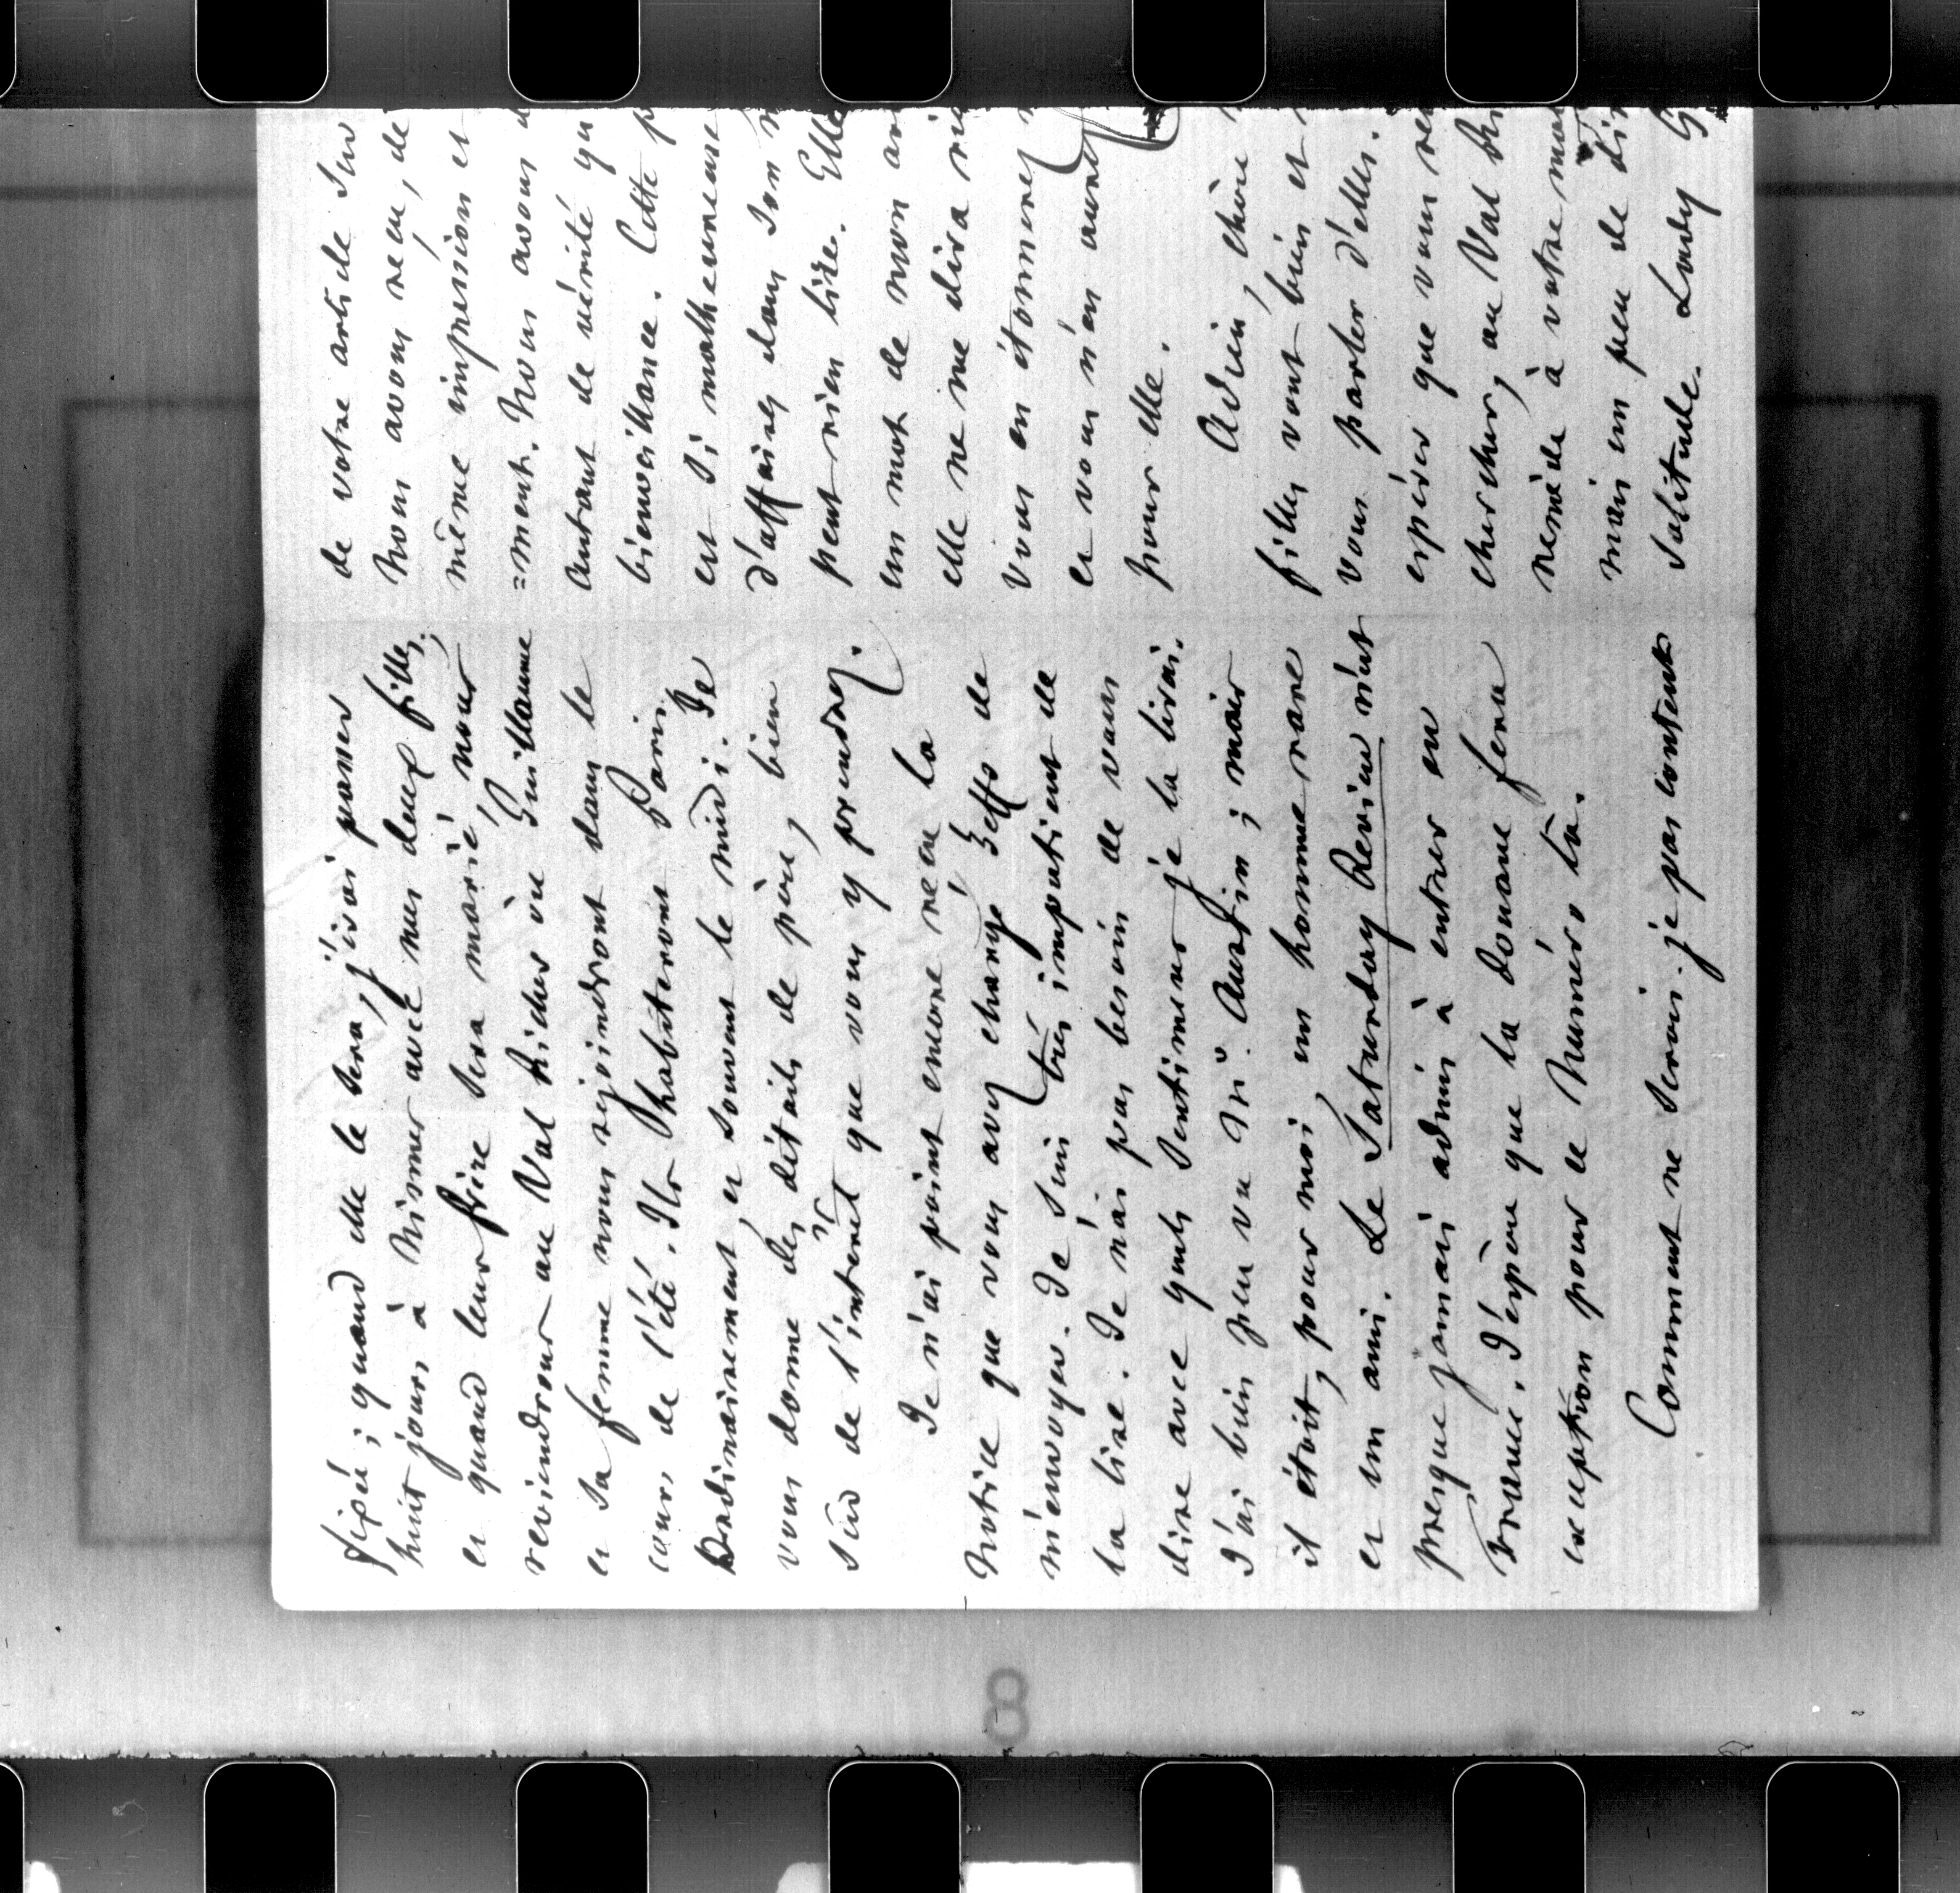 fixée ; quand elle le sera, j'irai passer
huit jours à Nismes avec mes deux filles,
et quand leur frère sera marié, nous
reviendrons au Val Richer où Guillaume
et sa femme nous rejoindront dans le
cours de l'été. Ils habiteront Paris
ordinairement, et souvent le midi. Je
vous donne des détails de père, bien
sûr de l'intérêt que vous y prendrez.
Je n'ai point encore reçu la
notice que vous avez chargé Zeffs de
m'envoyer. Je suis très impatient de
la lire. Je n'ai pas besoin de vous
dire avec quels sentimens je la lirai.
J'ai bien peu vu Mr. Austin ; mais
il étoit, pour moi, un homme rare
et un ami. Le Saturday Review n'est
presque jamais admis à entrer en
France. J'espère que la douane fera
exception pour ce Numéro là.
Comment ne serois-je pas content
de votre article sur
nous avons reçu, de
même impression et
=ment. Nous avons
autant de vérité qu
bienveillance. Cette p
est si malheureuse
d'affaires dans son
peut rien lire. Elle
un mot de mon ar
elle ne me dira ri
vous en étonnerez
et vous n'en aurez
pour elle.
Adieu, chère
filles vont bien et
vous parler d'elles.
espérer que vous
chercher, au Val Ri
remède à votre ma
mais un peu de di
solitude. Lady G
8